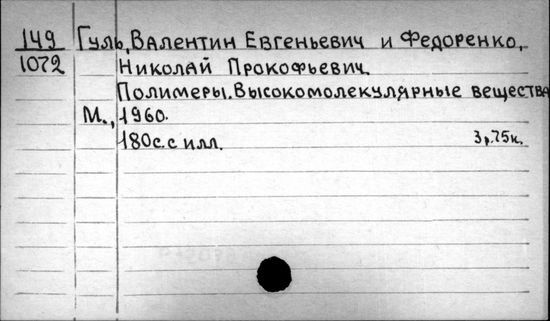 149 Гуль, Валентин Евгеньевич и Федоренко,
1072 Николай Прокофьевич.
Полимеры. Высокомолекулярные вещества
М., 1960.
180с. с илл. 3р.75к.